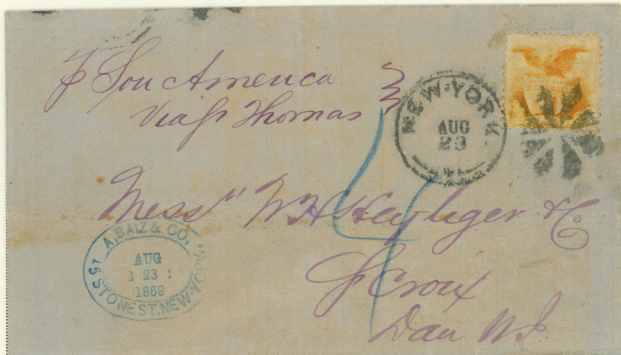 p Sou America
Via St Thomas
NEW-YORK
AUG
23
4
Mess" W H Heyliger & Co
St Croix
Dan W.I.
A. BAIZ & CO.
AUG
23
1869
45 STONE ST. NEW-YORK